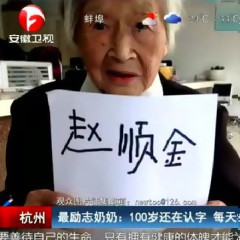 蚌埠
29℃
33℃
安徽卫视
赵顺金
newtoo@126.com
杭州
最励志奶奶：100岁还在认字 每天
要善待自己的生命，只有拥有健康的体魄才能